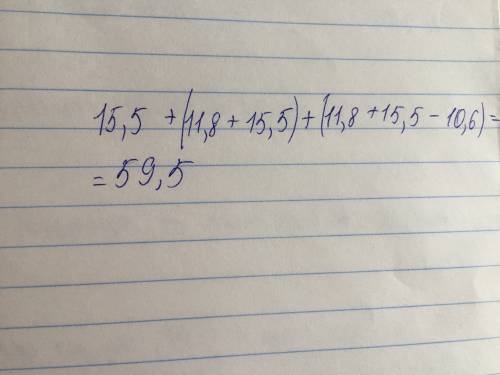 15,5 + (11,8 + 15,5) + (11,8 + 15,5 - 10,6) =
= 59,5